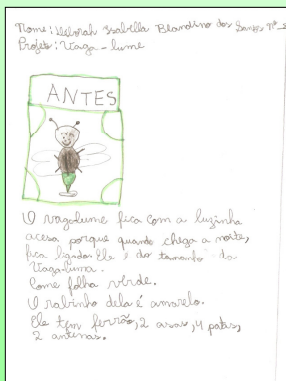 Nome: Deborah Isabella Blandino dos Santos nº
Projeto: Vaga-lume
ANTES
O vagalume fica com a luzinha
acesa porque quando chega a noite,
fica ligada. Ele é do tamanho da
Vaga-luma.
Come folha verde.
O rabinho dela é amarelo.
Ele tem ferrão, 2 asas, 4 patas,
2 antenas.